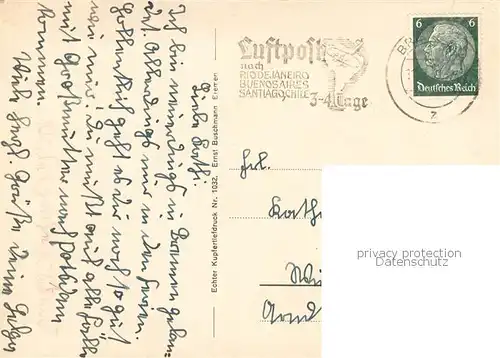 Liebe Käthi.
Ich bin neuerdings in Bremen gelan-
det. Allerdings nur in den Ferien.
Hoffentlich geht es Dir noch so gut
wie mir. Du mußt auf alle Fälle
mit Großmutter nach Potsdam
kommen.
Viele herzl. Grüße Deine Helga
Echter Kupfertiefdruck Nr. 1032. Ernst Buschmann Bremen
Luftpost
nach
RIO DE JANEIRO
BUENOS AIRES
SANTIAGO CHILE
3-4 Tage
BR
z
6 6
Deutsches Reich
Frl.
Käth
Wi
privacy protection
Datenschutz